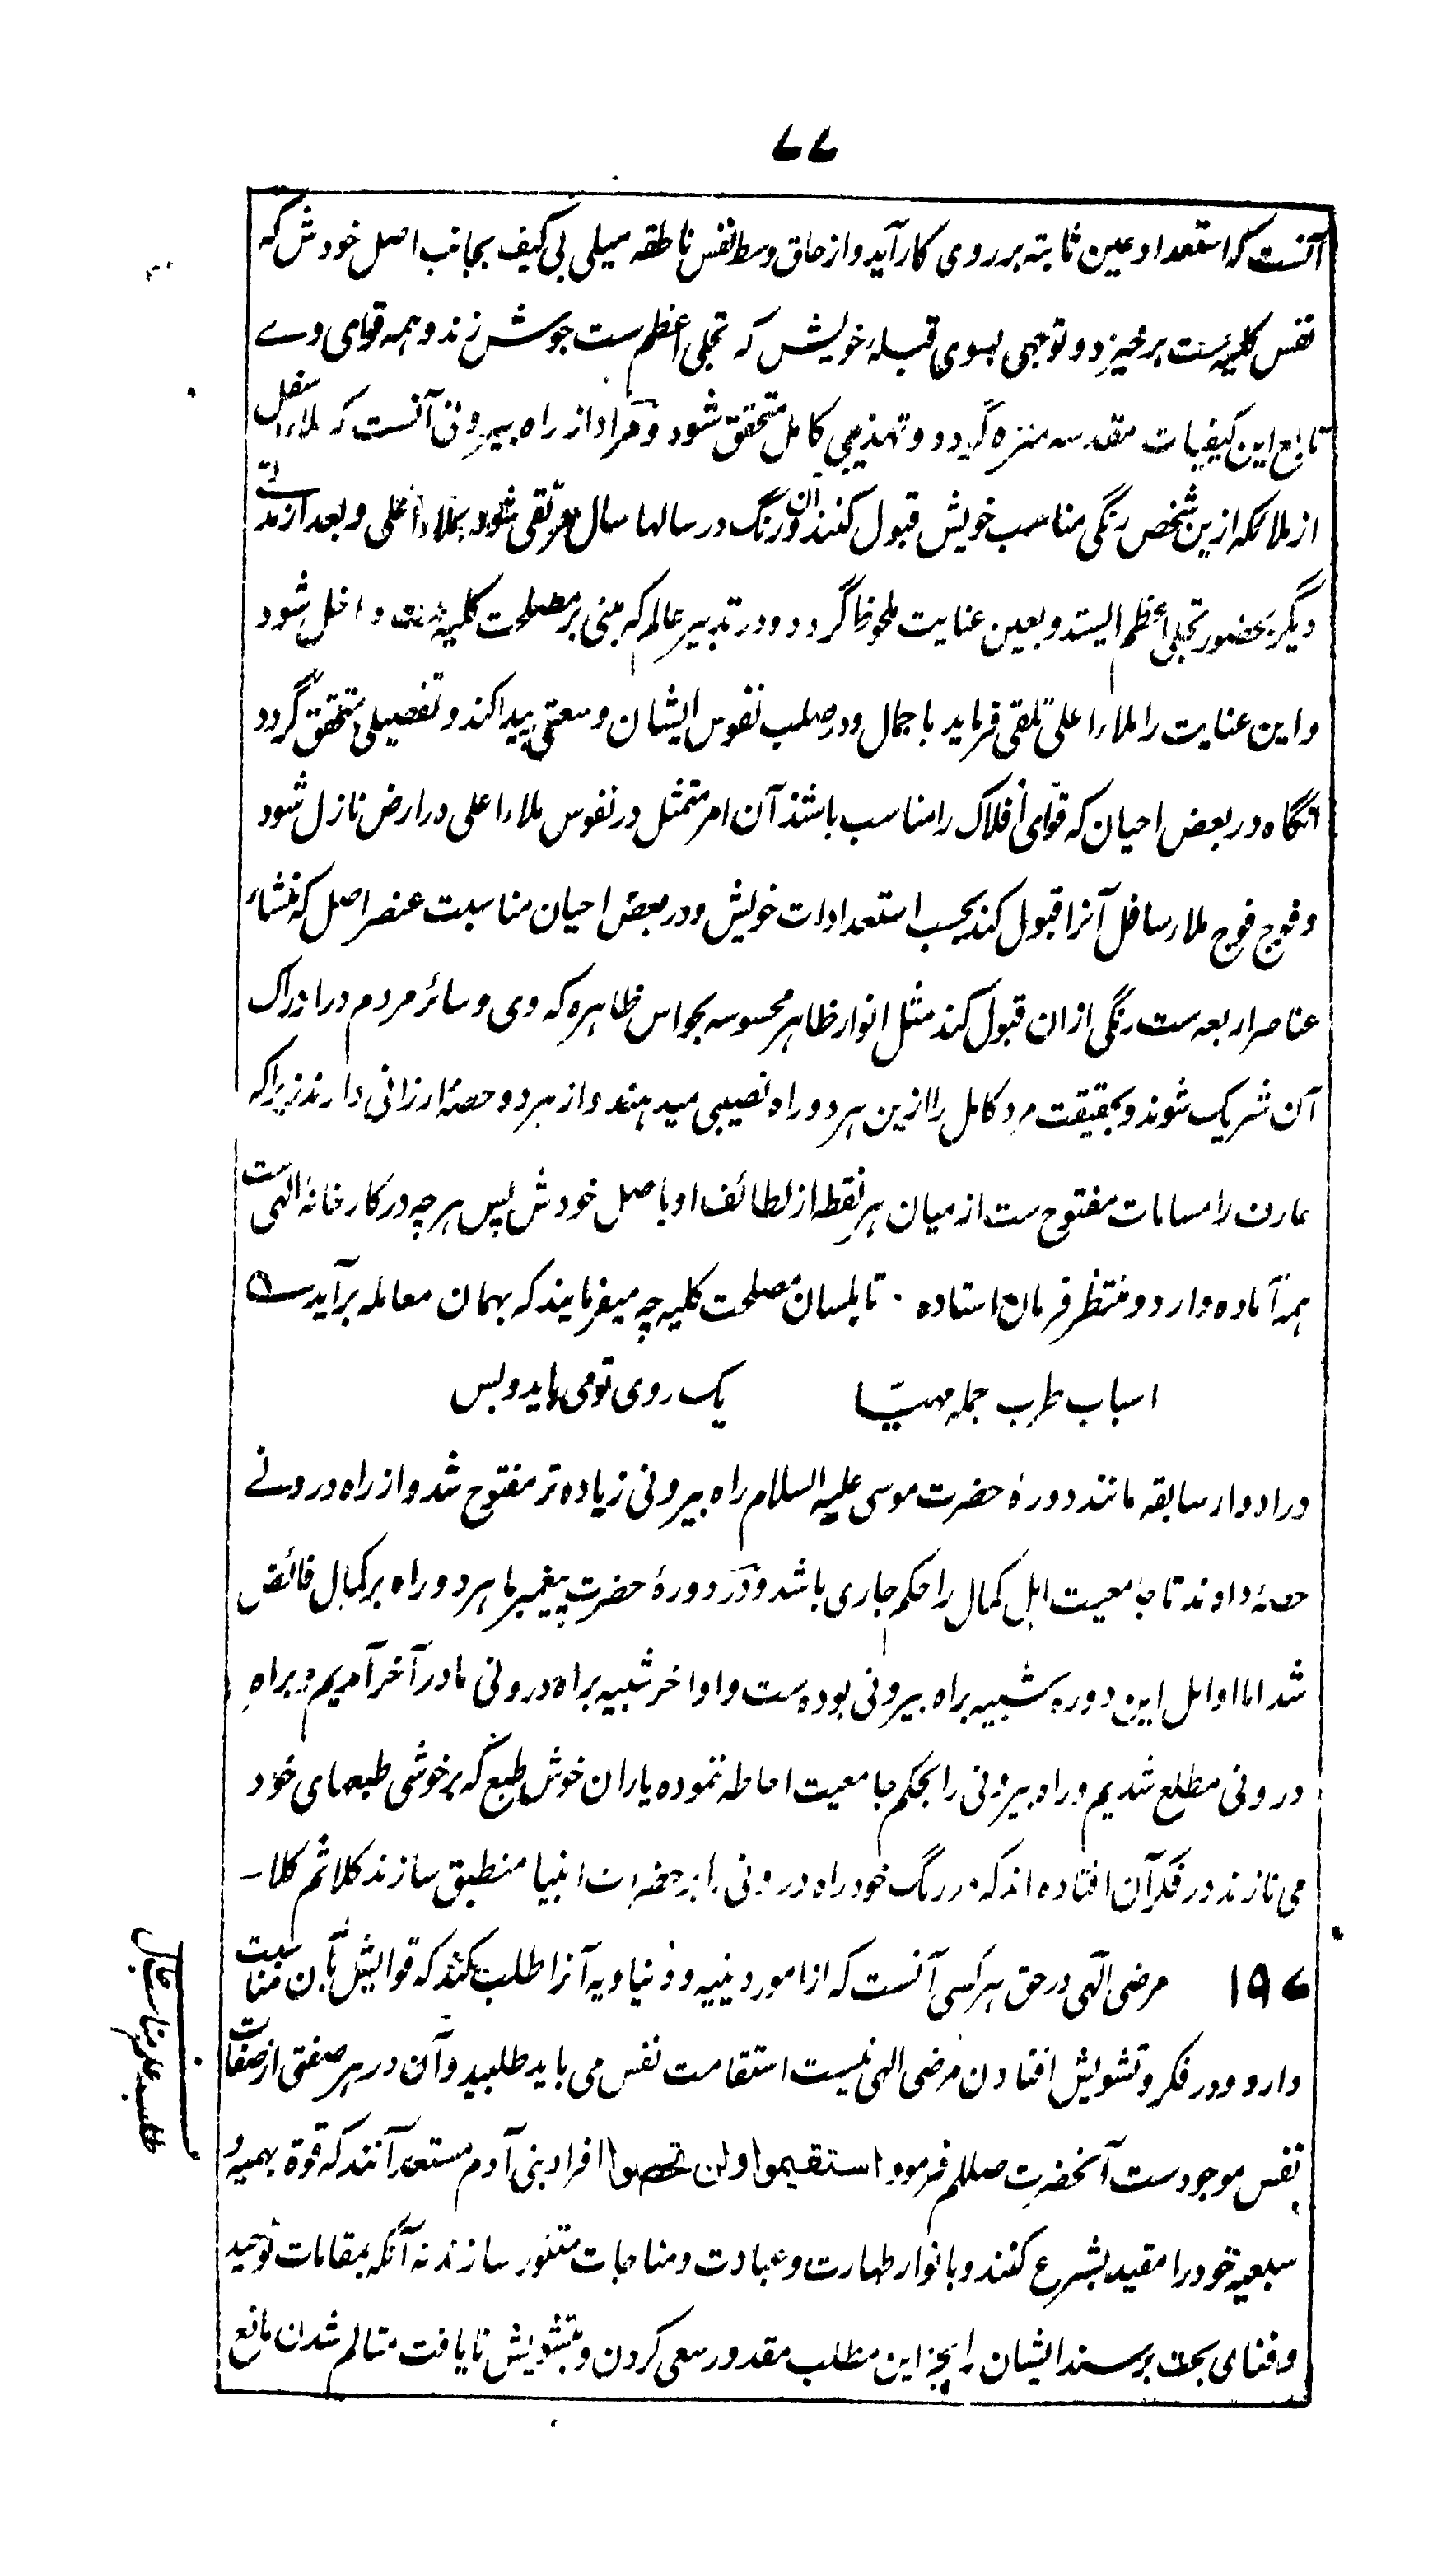 ۷۷
آنست که استعداد عین ثابته بر روی کار آید و از حاق وسط نفس ناطقه میلی بی کیف بجانب اصل خودش که
نفس کلیه ست برخیزد و توجهی بسوی قبلهٔ خویش که تجلی اعظم ست جوش زند و همه قوای وے
تابع این کیفیات مقدسه منزه گردد و تهذیبی کامل متحقق شود و مراد از راه بیرونی آنست که ملاء سفل
از ملائکه ازین شخص رنگی مناسب خویش قبول کنند و آن رنگ در سالها سال مرتقی شود بملاء اعلی و بعد از مدتے
دیگر بحضور تجلی اعظم ایستد و بعین عنایت ملحوظ گردد و در تدبیر عالم که مبنی بر مصلحت کلیه است داخل شود
و این عنایت را ملاء اعلی تلقی فرماید باجمال و در صلب نفوس ایشان وسعتی پیدا کند و تفصیلی متحقق گردد
آنگاه در بعض احیان که قوای افلاک را مناسب باشد آن امر متمثل در نفوس ملاء اعلی در ارض نازل شود
و فوج فوج ملاء سافل آنرا قبول کند بحسب استعدادات خویش و در بعض احیان مناسبت عنصر اصل که منشاء
عناصر اربعه ست رنگی ازان قبول کند مثل انوار ظاهر محسوسه بحواس ظاهره که وی و سائر مردم در ادراک
آن شریک شوند و بحقیقت مرد کامل را ازین هر دو راه نصیبی میدهند و از هر دو حصهٔ ارزانی دارند زیرا که
عارف را مسامات مفتوح ست از میان هر نقطه از لطائف او باصل خودش پس هر چه در کارخانهٔ الهی ست
همه آماده دارد و منتظر فرمان استاده ۰ تا بلسان مصلحت کلیه چه میفرمایند که بهمان معامله برآید ے
اسباب طرب جمله مهیّا   یک روی تو می باید و بس
در ادوار سابقه مانند دورهٔ حضرت موسی علیه السلام راه بیرونی زیاده تر مفتوح شد و از راه درونے
حصهٔ دادند تا جامعیت اهل کمال را حکم جاری باشد و در دورهٔ حضرت پیغمبر ما هر دو راه بر کمال فائض
شد اما اوایل این دوره شبیه براه بیرونی بوده ست و اواخر شبیه براه درونی ما در آخر آمدیم و براهِ
درونی مطلع شدیم و راه بیرونی را بحکم جامعیت احاطه نموده یاران خوش طبع که بر خوشی طبعهای خود
می نازند در فکر آن افتاده اند که در رگ خود راه درونی را بر حضرات انبیا منطبق سازند کلا ثم کلا -
۱۹۷   مرضی الهی در حق هر کسی آنست که از امور دینیه و دنیاویه آنرا طلب کند که قوایش بآن مناسبت
دارد و در فکر و تشویش افتادن مرضی الهی نیست استقامت نفس می باید طلبید و آن در هر صفتی از صفات
نفس موجود ست آنحضرت صللم فرمود استقیموا ولن تحصوا افراد بنی آدم مستعد آنند که قوة بهیمیه و
سبعیه خود را مقید بشرع کنند و بانوار طهارت و عبادت و مناجات متنور سازند نه آنکه بمقامات توحید
و فنای بحت برسند ایشان را بجز این مطلب مقدور سعی کردن و بتشویش نایافت متالم شدن مانع
طلب علی مناسب حال